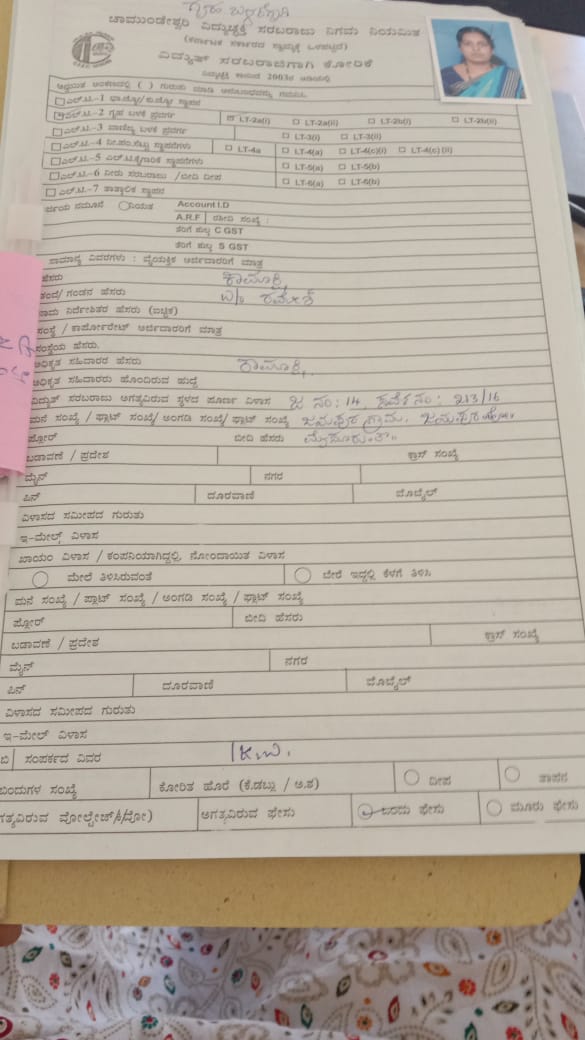 ಗೃಹ ಬಳಕೆಗಾಗಿ
ಚಾಮುಂಡೇಶ್ವರಿ ವಿದ್ಯುಚ್ಛಕ್ತಿ ಸರಬರಾಜು ನಿಗಮ ನಿಯಮಿತ
(ಕರ್ನಾಟಕ ಸರ್ಕಾರದ ಸ್ವಾಮ್ಯಕ್ಕೆ ಒಳಪಟ್ಟಿದೆ)
ವಿದ್ಯುತ್ ಸರಬರಾಜಿಗಾಗಿ ಕೋರಿಕೆ
ವಿದ್ಯುಚ್ಛಕ್ತಿ ಕಾಯಿದೆ 2003ರ ಅಡಿಯಲ್ಲಿ
( ) ಗುರುತು ಮಾಡಿ
ಎಲ್.ಟಿ.-1
ಎಲ್.ಟಿ.-2 ಗೃಹ ಬಳಕೆ ಪ್ರವರ್ಗ LT-2a(i) LT-2a(ii) LT-2b(i) LT-2b(ii)
ಎಲ್.ಟಿ.-3 ವಾಣಿಜ್ಯ ಬಳಕೆ ಪ್ರವರ್ಗ LT-3(i) LT-3(ii)
ಎಲ್.ಟಿ.-4 ನೀ.ಪಂ.ಸೆಟ್ಟು ಸ್ಥಾಪನಗಳು LT-4a LT-4(a) LT-4(c)(i) LT-4(c)(ii)
ಎಲ್.ಟಿ.-5 ಎಲ್.ಟಿ.ಕೈಗಾರಿಕೆ ಸ್ಥಾಪನೆಗಳು LT-5(a) LT-5(b)
ಎಲ್.ಟಿ.-6 ನೀರು ಸರಬರಾಜು /ಬೀದಿ ದೀಪ LT-6(a) LT-6(b)
ಎಲ್.ಟಿ.-7 ತಾತ್ಕಾಲಿಕ ಸ್ಥಾಪನ
ನಮೂನೆ ನಿಯತ Account I.D
A.R.F ರಸೀದಿ ಸಂಖ್ಯೆ :
ತೆರಿಗೆ ಶುಲ್ಕ C GST
ತೆರಿಗೆ ಶುಲ್ಕ S GST
ಸಾಮಾನ್ಯ ವಿವರಗಳು : ವೈಯಕ್ತಿಕ ಅರ್ಜಿದಾರರಿಗೆ ಮಾತ್ರ
ಹೆಸರು ಕಾಮಾಕ್ಷಿ
ತಂದೆ/ ಗಂಡನ ಹೆಸರು W/o ರಮೇಶ್
ನಾಮ ನಿರ್ದೇಶಿತರ ಹೆಸರು (ಐಚ್ಛಿಕ)
ಸಂಸ್ಥೆ / ಕಾರ್ಪೋರೇಟ್ ಅರ್ಜಿದಾರರಿಗೆ ಮಾತ್ರ
ಸಂಸ್ಥೆಯ ಹೆಸರು.
ಅಧಿಕೃತ ಸಹಿದಾರರ ಹೆಸರು ಕಾಮಾಕ್ಷಿ
ಅಧಿಕೃತ ಸಹಿದಾರರು ಹೊಂದಿರುವ ಹುದ್ದೆ
ವಿದ್ಯುತ್ ಸರಬರಾಜು ಅಗತ್ಯವಿರುವ ಸ್ಥಳದ ಪೂರ್ಣ ವಿಳಾಸ ಜ ನಂ : 14, ಸರ್ವೆ ನಂ : 213/16
ಮನೆ ಸಂಖ್ಯೆ /ಫ್ಲಾಟ್ ಸಂಖ್ಯೆ/ ಅಂಗಡಿ ಸಂಖ್ಯೆ/ ಫ್ಲಾಟ್ ಸಂಖ್ಯೆ ಜಯಪುರ ಗ್ರಾಮ, ಜಯಪುರ ಹೋ
ಫ್ಲೋರ್ ಬೀದಿ ಹೆಸರು ಮೈಸೂರು ತಾ
ಬಡಾವಣೆ / ಪ್ರದೇಶ ಕ್ರಾಸ್ ಸಂಖ್ಯೆ
ಮೈನ್ ನಗರ
ಪಿನ್ ದೂರವಾಣಿ ಮೊಬೈಲ್
ವಿಳಾಸದ ಸಮೀಪದ ಗುರುತು
ಇ-ಮೇಲ್ ವಿಳಾಸ
ಖಾಯಂ ವಿಳಾಸ / ಕಂಪನಿಯಾಗಿದ್ದಲ್ಲಿ, ನೋಂದಾಯಿತ ವಿಳಾಸ
ಮೇಲೆ ತಿಳಿಸಿರುವಂತೆ ಬೇರೆ ಇದ್ದಲ್ಲಿ ಕೆಳಗೆ ತಿಳಿಸಿ
ಮನೆ ಸಂಖ್ಯೆ / ಪ್ಲಾಟ್ ಸಂಖ್ಯೆ / ಅಂಗಡಿ ಸಂಖ್ಯೆ / ಫ್ಲಾಟ್ ಸಂಖ್ಯೆ
ಫ್ಲೋರ್ ಬೀದಿ ಹೆಸರು
ಬಡಾವಣೆ / ಪ್ರದೇಶ ಕ್ರಾಸ್ ಸಂಖ್ಯೆ
ಮೈನ್ ನಗರ
ಪಿನ್ ದೂರವಾಣಿ ಮೊಬೈಲ್
ವಿಳಾಸದ ಸಮೀಪದ ಗುರುತು
ಇ-ಮೇಲ್ ವಿಳಾಸ
ಬಿ ಸಂಪರ್ಕದ ವಿವರ 1K.W.
ಬಿಂದುಗಳ ಸಂಖ್ಯೆ ಕೋರಿತ ಹೊರೆ (ಕೆ.ಡಬ್ಲು / ಅ.ಶ) ದೀಪ ತಾಪನ
ಅಗತ್ಯವಿರುವ ಫೇಸು ಒಂದು ಫೇಸು ಮೂರು ಫೇಸು